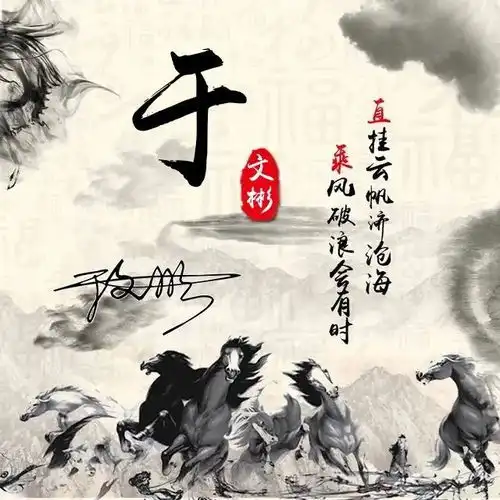 于
文彬
直挂云帆济沧海
乘风破浪会有时